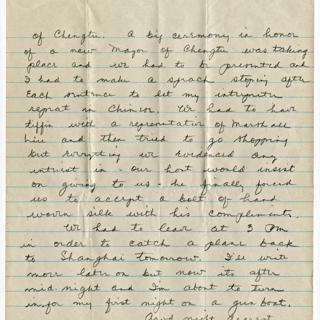 of Chengtu. A big ceremony in honor
of a new Mayor of Chengtu was taking
place and we had to be presented and
I had to make a speach stoping after
Each sentence to let my interpreter
repeat in Chinese. We had to have
tiffin with a representative of Marshall
and then tried to go shopping
but everything we evidenced any
intrest in - our host would insist
on giving to us - he finally forced
us to accept a bolt of hand
woven silk with his compliments.
We had to leave at 3 PM
in order to catch a plane back
to Shanghai tomorrow. I'll write
more later on but now its after
mid-night and I'm about to turn
in for my first night on a gun boat.
Good night dearest